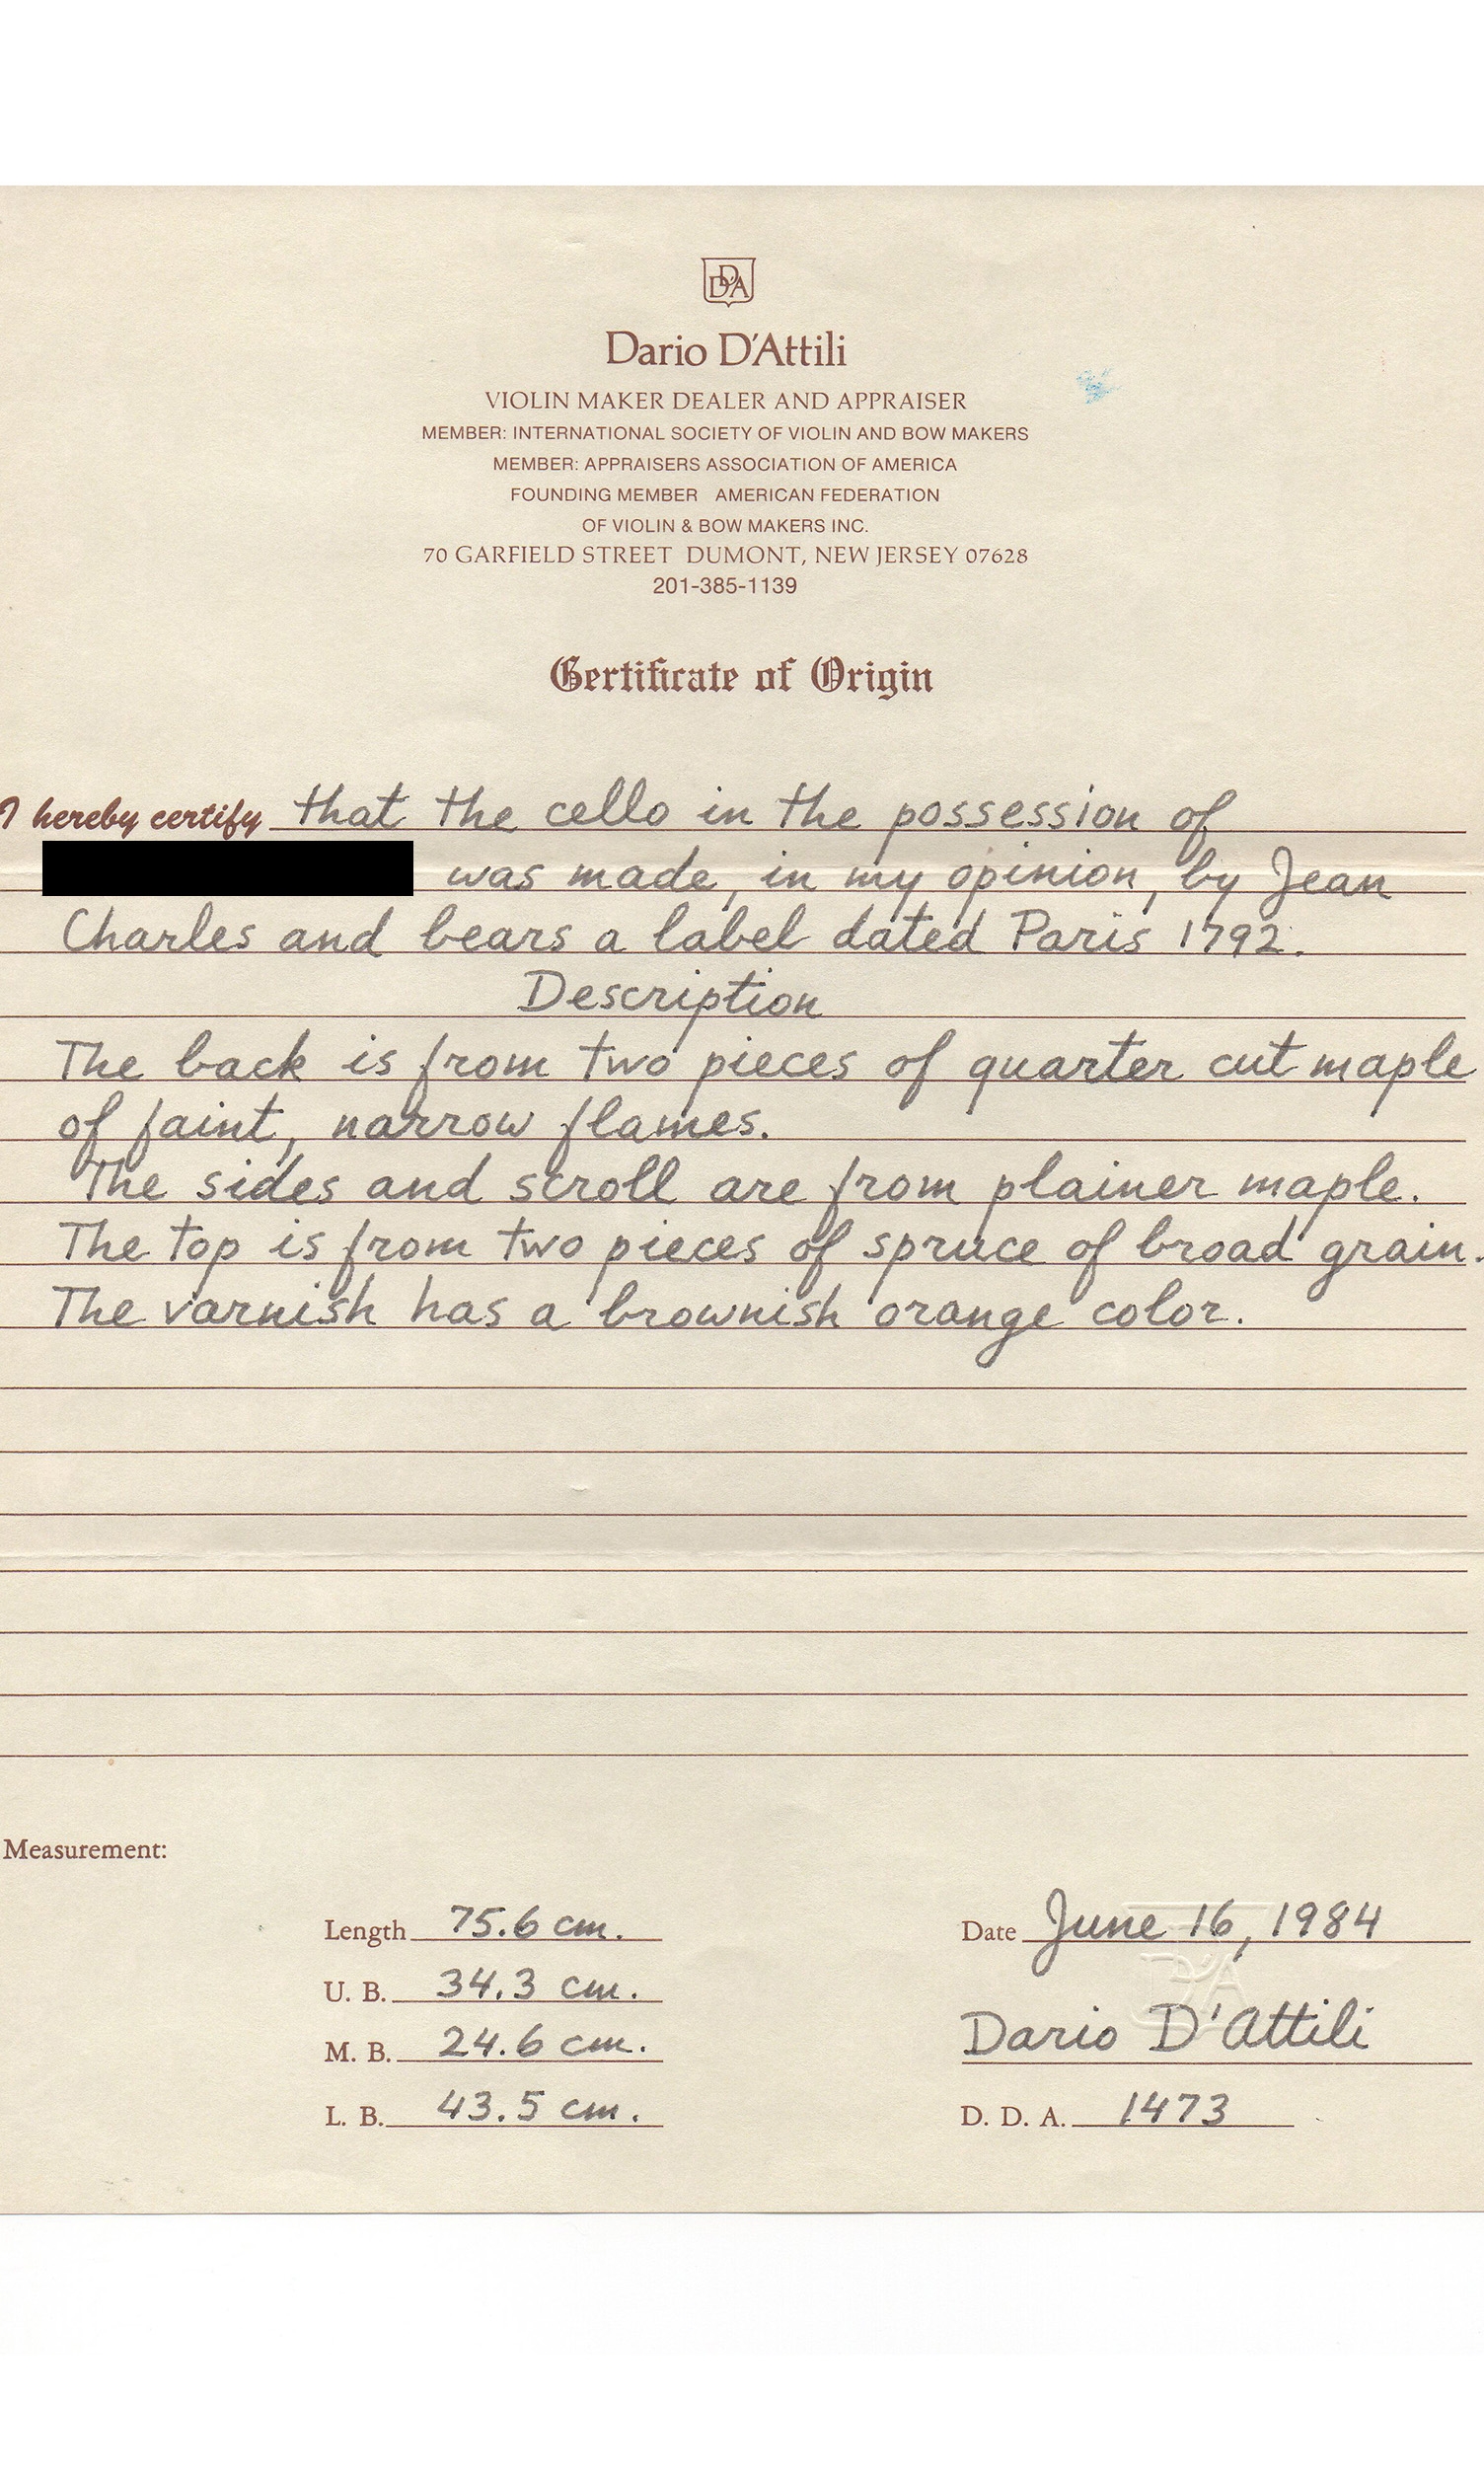 DD'A
Dario D'Attili
VIOLIN MAKER DEALER AND APPRAISER
MEMBER: INTERNATIONAL SOCIETY OF VIOLIN AND BOW MAKERS
MEMBER: APPRAISERS ASSOCIATION OF AMERICA
FOUNDING MEMBER AMERICAN FEDERATION
OF VIOLIN & BOW MAKERS INC.
70 GARFIELD STREET DUMONT, NEW JERSEY 07628
201-385-1139
Certificate of Origin
I hereby certify that the cello in the possession of
was made, in my opinion, by Jean
Charles and bears a label dated Paris 1792.
Description
The back is from two pieces of quarter cut maple
of faint, narrow flames.
The sides and scroll are from plainer maple.
The top is from two pieces of spruce of broad grain.
The varnish has a brownish orange color.
Measurement:
Length 75.6 cm.
U. B. 34.3 cm.
M. B. 24.6 cm.
L. B. 43.5 cm.
Date June 16, 1984
Dario D'Attili
D. D. A. 1473